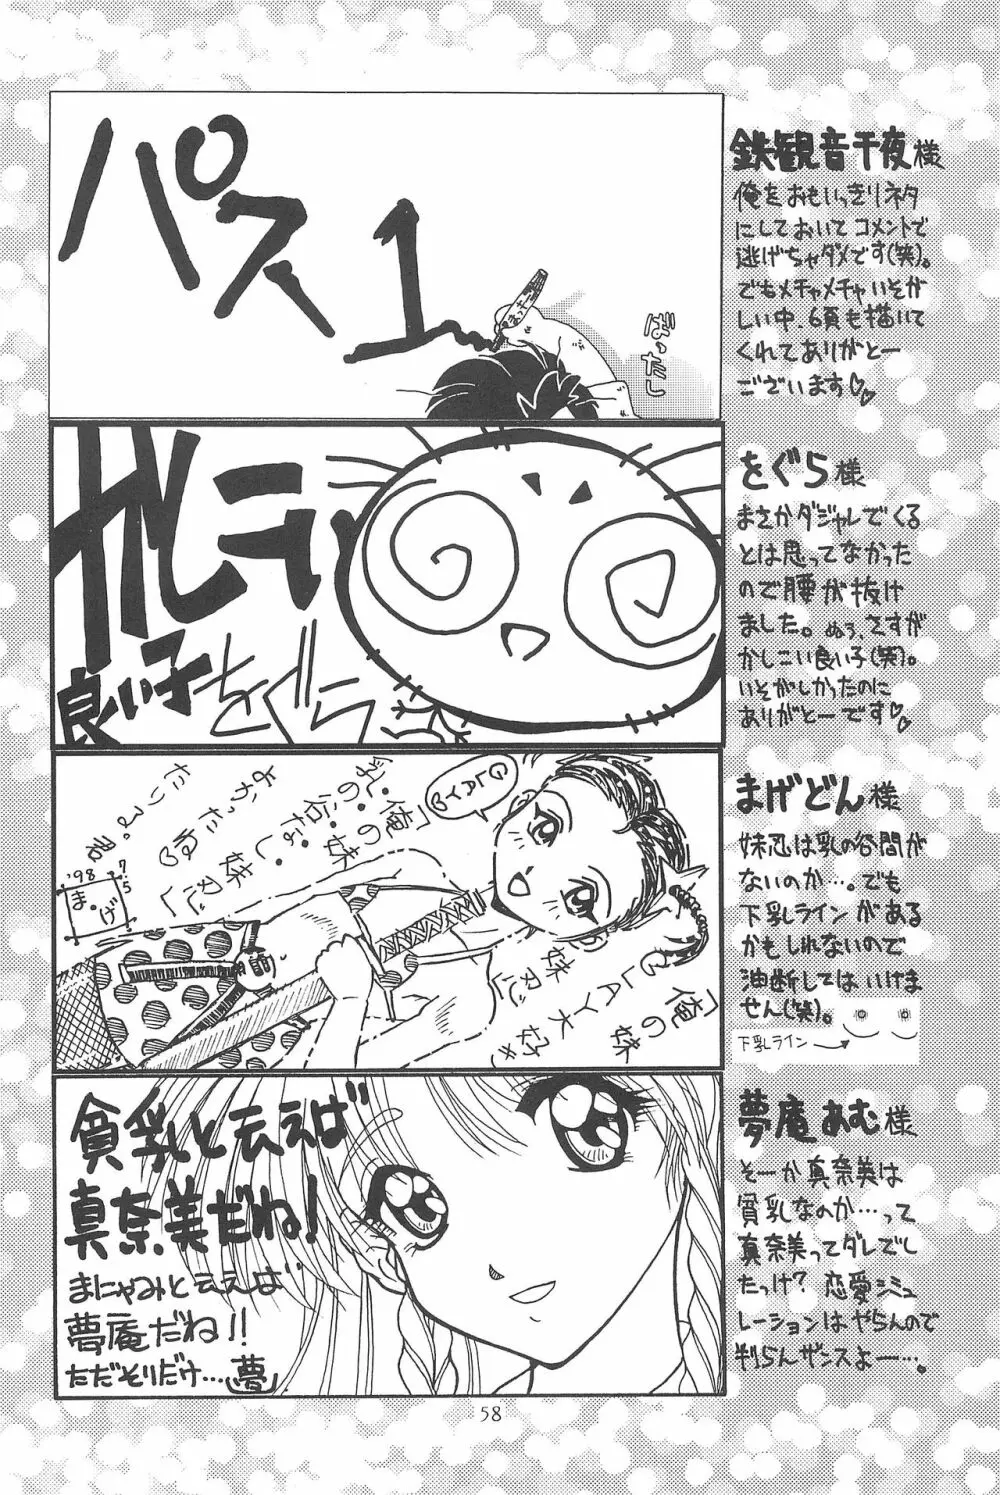 パス1
ばったし
鉄観音千夜様
俺をおもいっきりネタ
にしておいてコメントで
逃げちゃダメです(笑)。
でもメチャメチャいそがし
い中、6頁も描いて
くれてありがとー
ございます♡♡
かしこい
良い子
をぐら
をぐら様
まさかダジャレでくる
とは思ってなかった
ので腰が抜け
ました。ぬぅ、さすが
かしこい良い子(笑)。
いそがしかったのに
ありがとーです♡♡
GLAY♡
「俺の妹
GLAY大好き
妹忍」
「俺の妹
乳の谷なし
妹忍」
よかったね♡
たりぶ君
'98 7/5
まげ
まげどん様
妹忍は乳の谷間が
ないのか…。でも
下乳ラインがある
かもしれないので
油断してはいけま
せん(笑)。
下乳ライン→
貧乳と云えば
真奈美だね!
まにゃみと云えば
夢庵だね!!
ただそりだけ…(夢)
夢庵あむ様
そーか真奈美は
貧乳なのか…って
真奈美ってダレでし
たっけ? 恋愛シミュ
レーションはやらんので
判らんザンスよー…。
58